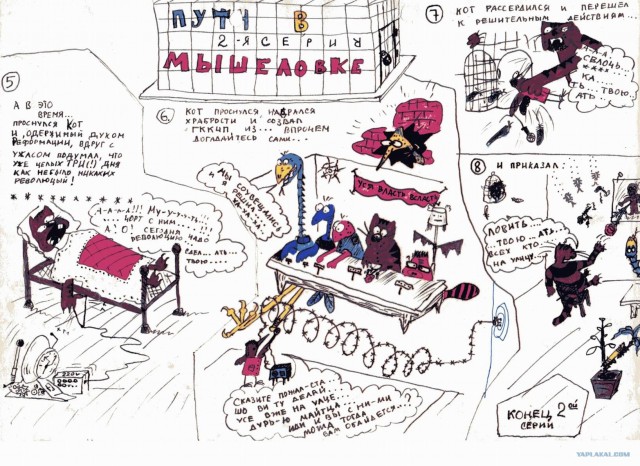 ПУТЧ В
2-Я СЕРИЯ
МЫШЕЛОВКЕ
5
А В ЭТО
ВРЕМЯ...
ПРОСНУЛСЯ КОТ
И, ОДЕРЖИМЫЙ ДУХОМ
РЕФОРМАЦИИ, ВДРУГ С
УЖАСОМ ПОДУМАЛ, ЧТО
УЖЕ ЦЕЛЫХ ТРИ(!) ДНЯ
КАК НЕБЫЛО НИКАКИХ
РЕВОЛЮЦИЙ!
А-А-А-А!!!
ЧОРТ С НИМ...
А! О! СЕГОДНЯ НАДО
РЕВОЛЮЦИЮ
СДЕЛ...АТЬ...
ТВОЮ...
220V
6.
КОТ ПРОСНУЛСЯ НАБРАЛСЯ
ХРАБРОСТИ И СОЗВАЛ
ГККЧП ИЗ... ВПРОЧЕМ
ДОГАДАЙТЕСЬ САМИ...
МЫ
СОВЕЩАЛИСЬ
И РЕШИЛИ...
ХА-ХА-ХА
УСЯ ВЛАСТЬ ВСЛАСТЬ
СКАЖИТЕ ПОЖАЛ-СТА
ШО ВИ ТУ ДЕЛАЙ...
УСЕ ВЖЕ НА УЛИЦЕ...
ДУРЬ-Ю МАЙТЦА
ИДИ И ВЫ С НИ-МИ
МОЦА ТОГДА
ВАМ ОБАЙДЕТСЯ
7
КОТ РАССЕРДИЛСЯ И ПЕРЕШЕЛ
К РЕШИТЕЛЬНЫМ ДЕЙСТВИЯМ...
А-А-А
СВЛОЧЬ...
****
КА...
ТЬ...ТВОЮ...
АТЬ...
8
И ПРИКАЗАЛ:
ЛОВИТЬ...
...ТВОЮ...АТЬ...
ВСЕХ КТО
НА УЛИЦЕ
КОНЕЦ 2ОЙ
СЕРИИ
YAPLAKAL.COM